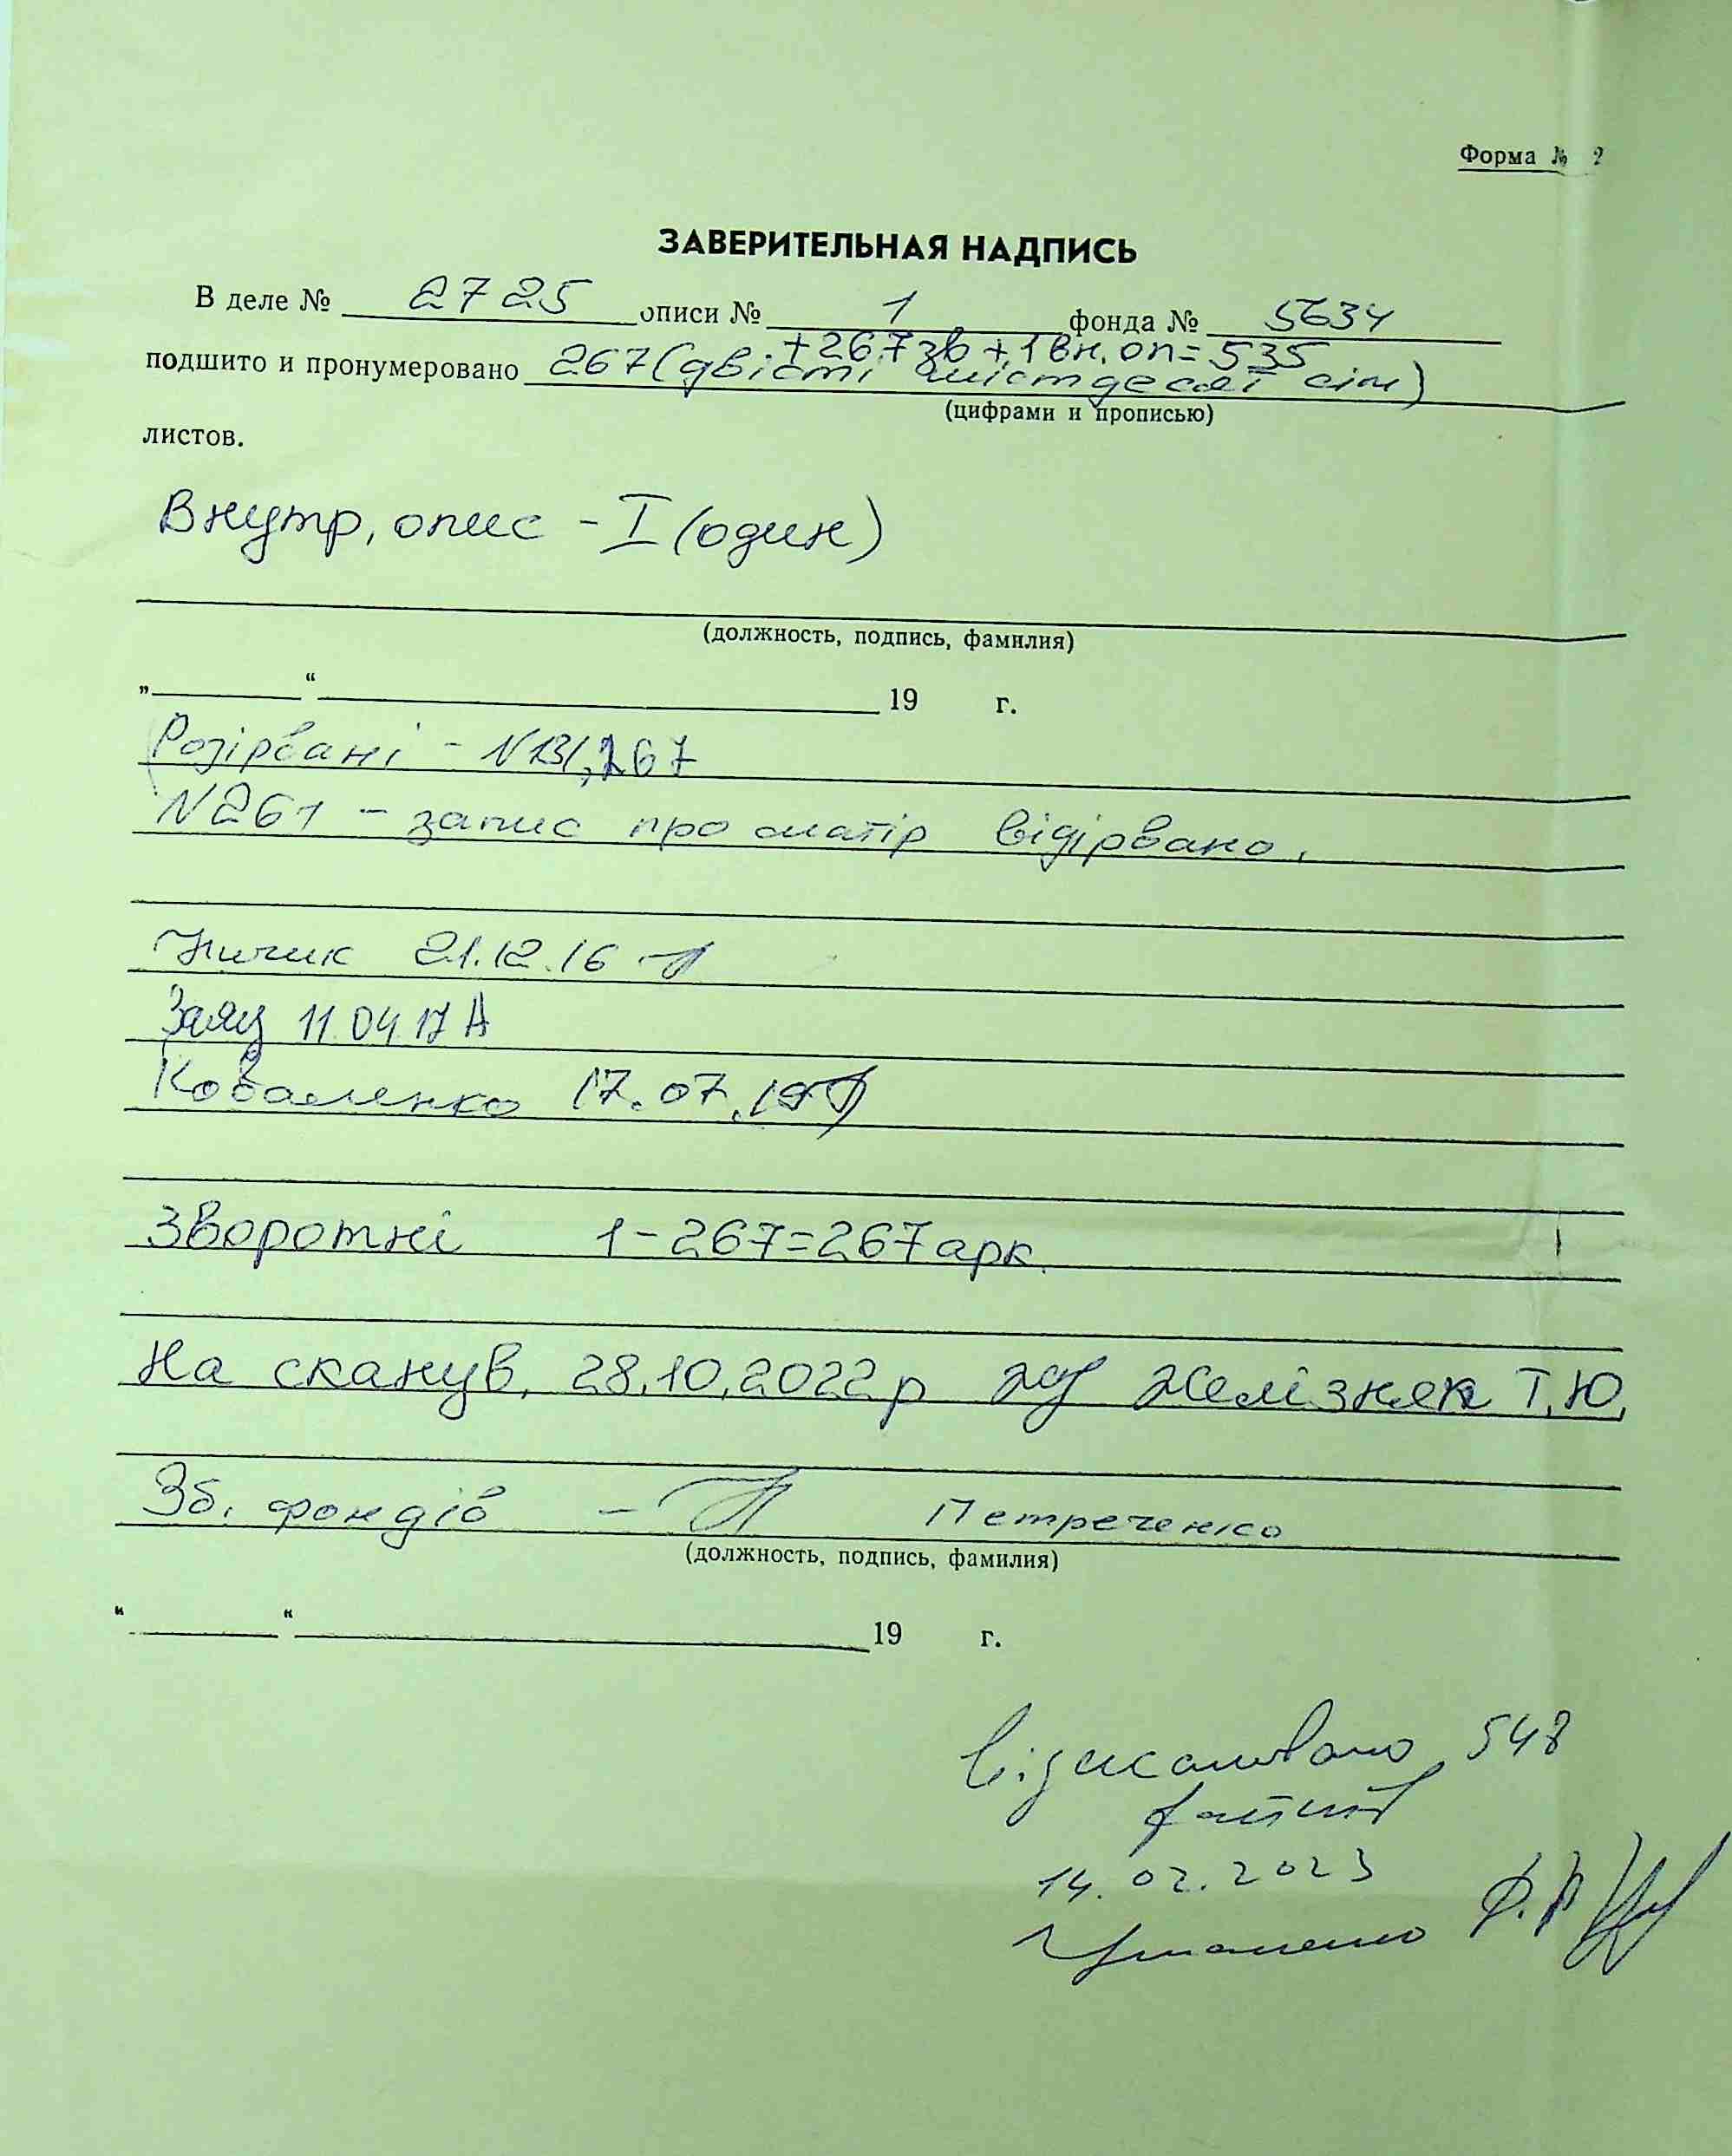 Форма № 2
ЗАВЕРИТЕЛЬНАЯ НАДПИСЬ
В деле № 2725 описи № 1 фонда № 5634
+267зв+1вн.оп=535
подшито и пронумеровано 267(двісті шістдесят сім)
(цифрами и прописью)
листов.
Внутр, опис - I (один)
(должность, подпись, фамилия)
„ “ 19 г.
Розірвані - N131,267
N261 - запис про матір відірвано.
21.12.16
Заяц 11.04.17
Коваленко 17.07.19
Зворотні 1-267=267арк.
На сканув. 28.10.2022р Желізняк Т.Ю.
Зб. фондів - Петреченко
(должность, подпись, фамилия)
“ “ 19 г.
Відскановано 548
файлів
14.02.2023